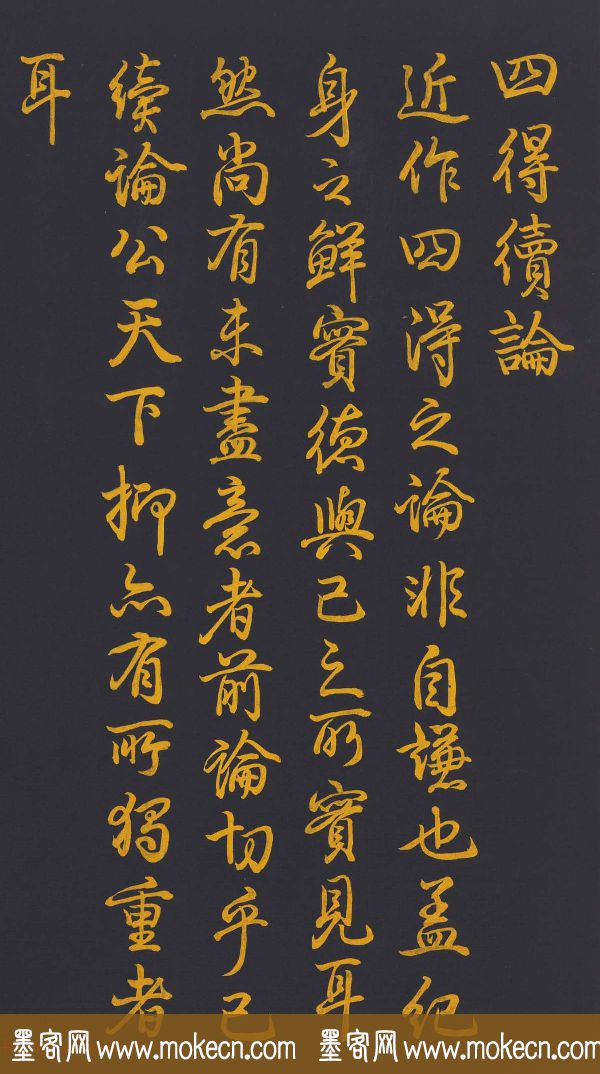 四得續論
近作四得之論非自謙也蓋紀
身之鮮實德與己之所實見耳
然尚有未盡意者前論切乎己
續論公天下抑亦有所獨重者
耳
墨客网 www.mokecn.com 墨客网 www.mokecn.com